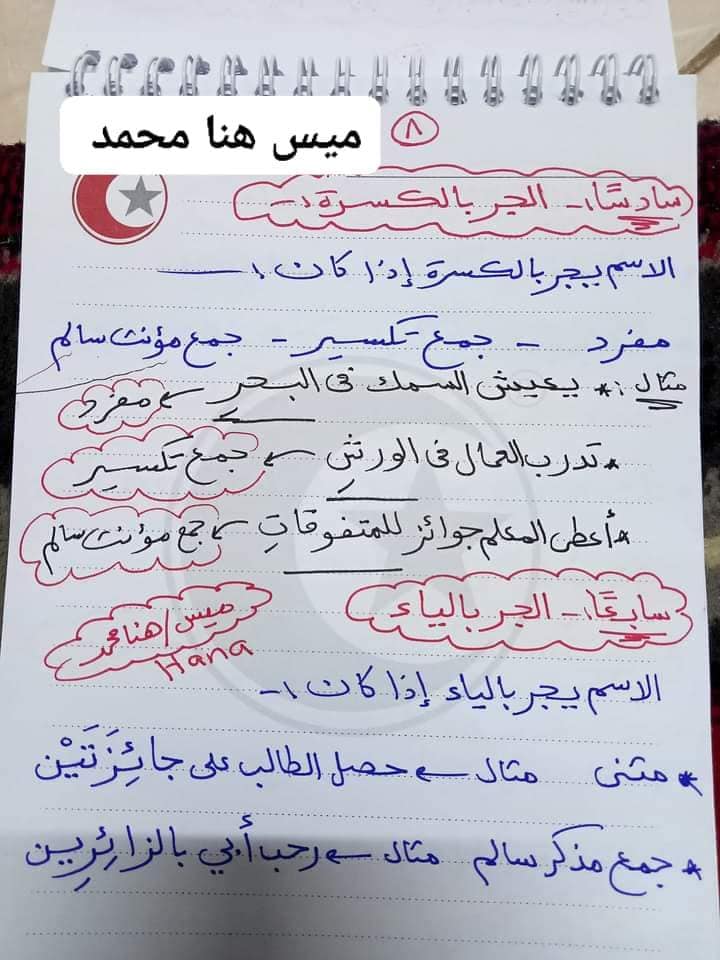 ميس هنا محمد
٨
سادسًا :- الجر بالكسرة :-
الاسم يجر بالكسرة إذا كان :
مفرد - جمع تكسير - جمع مؤنث سالم
مثال : * يعيش السمك فى البحرِ ← مفرد
* تدرب العمال فى الورشِ ← جمع تكسير
* أعطى المعلم جوائز للمتفوقاتِ ← جمع مؤنث سالم
سابعًا :- الجر بالياء
ميس / هنا محمد
Hana
الاسم يجر بالياء إذا كان :-
* مثنى مثال ← حصل الطالب على جائِزَتَيْن
* جمع مذكر سالم مثال ← رحب أبي بالزائِرِين